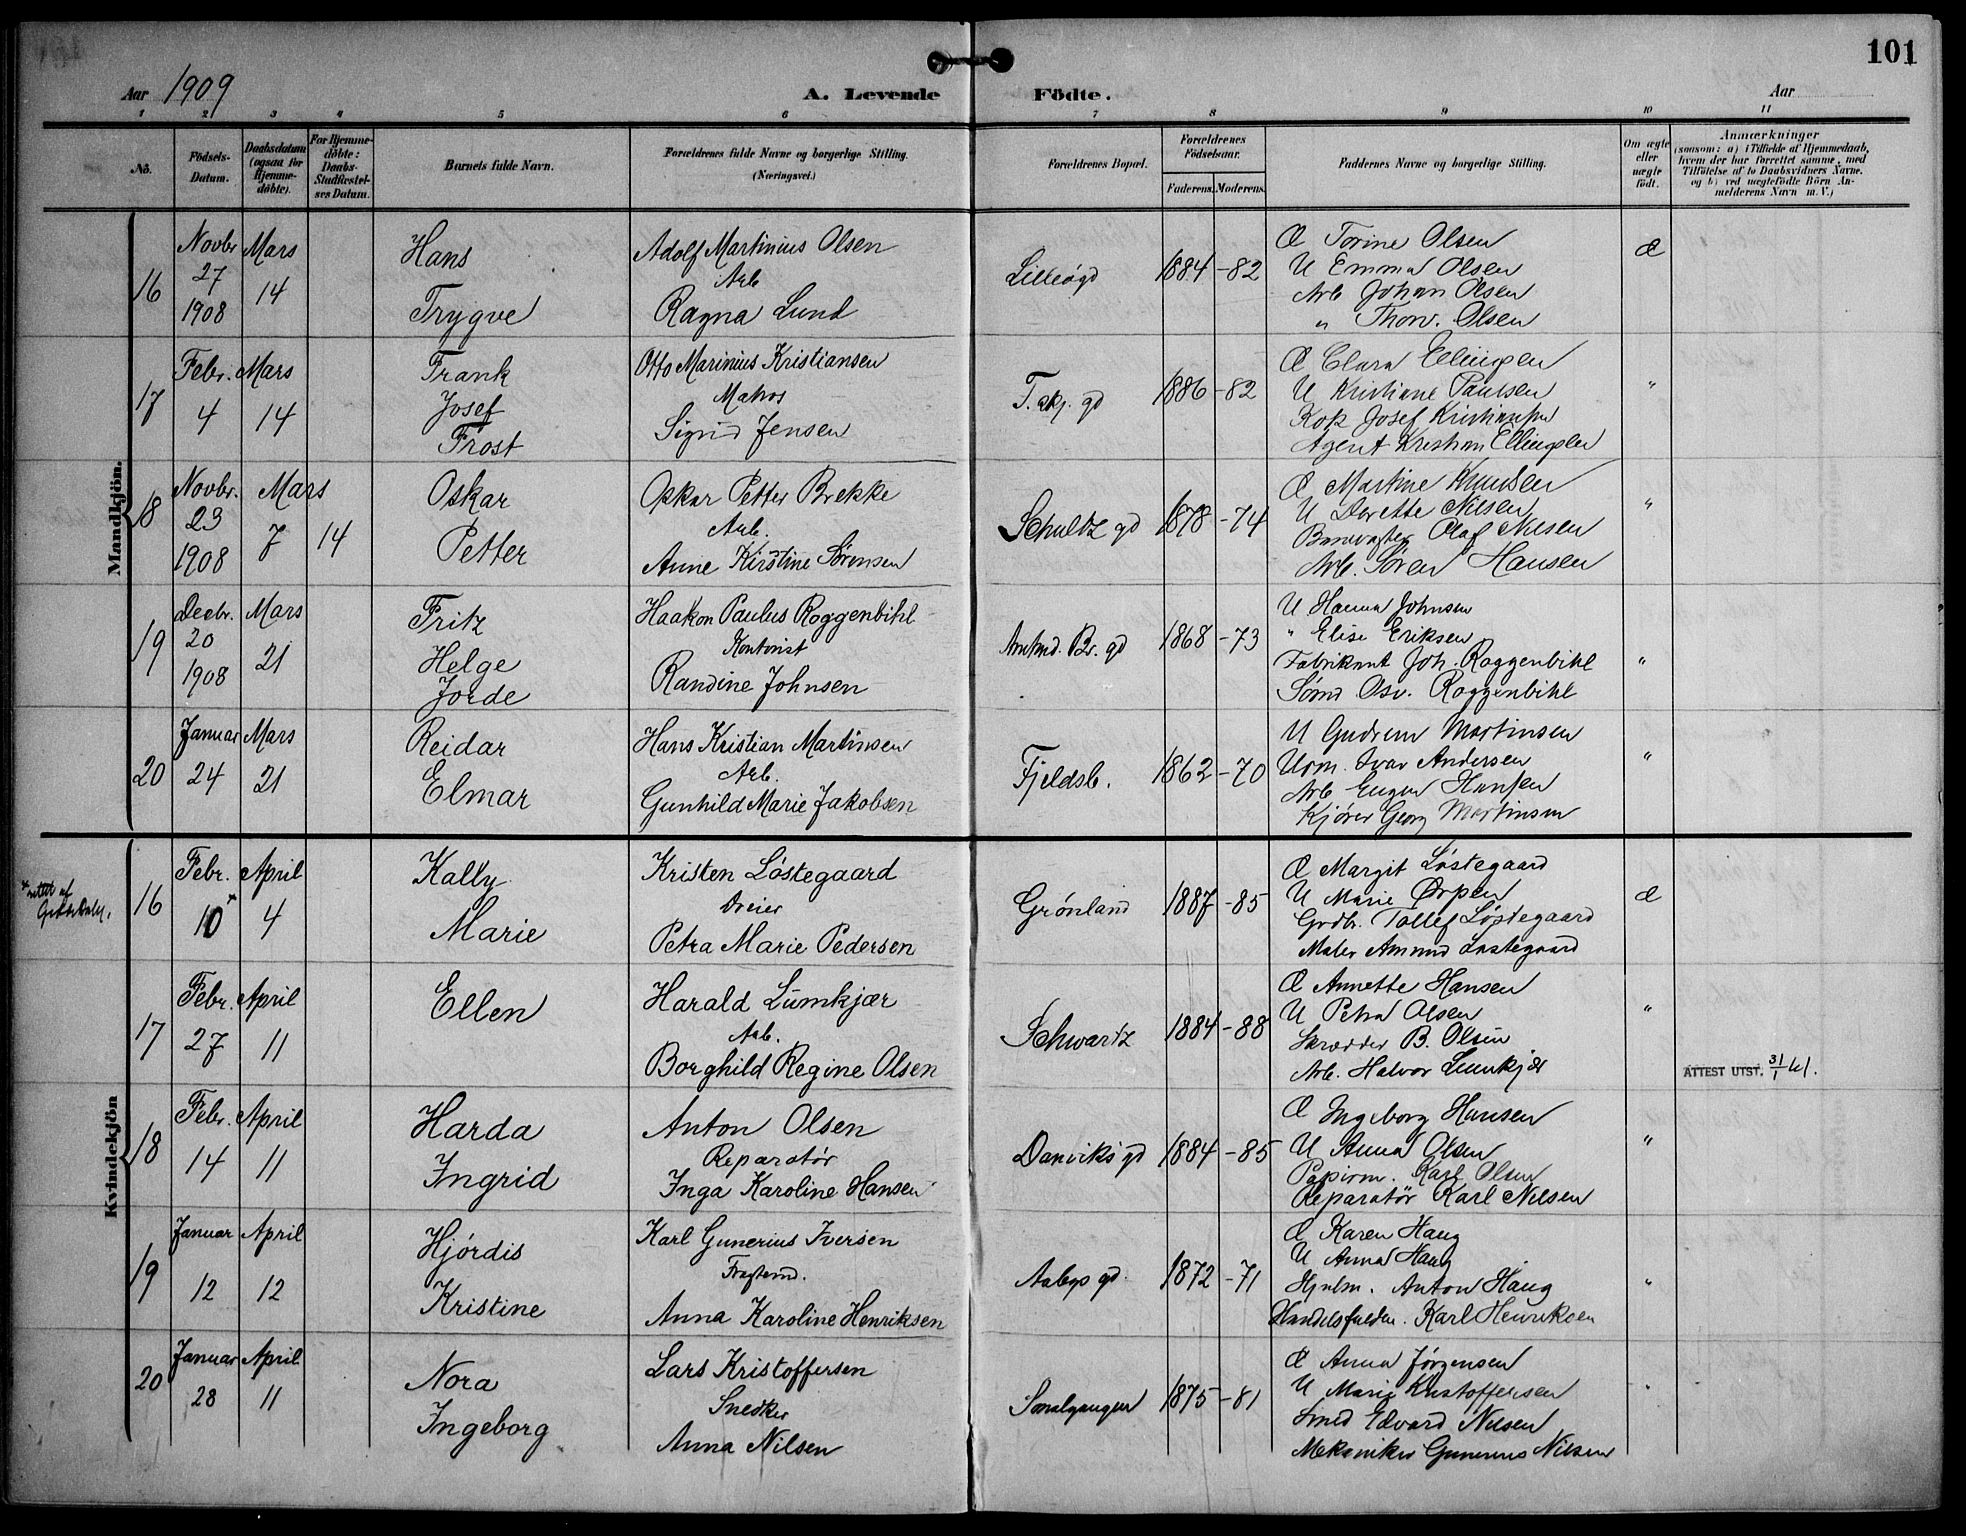 101
Aar 1909
A. Levende Födte.
Aar
1 2 3 4 5 6 7 8 9 10 11
No.
Födsels-Datum.
Daabsdatum (ogsaa for Hjemmedöbte).
For Hjemmedöbte: Daabs-Stadfæstelses Datum.
Barnets fulde Navn.
Forældrenes fulde Navne og borgerlige Stilling. (Næringsvei.)
Forældrenes Bopæl.
Forældrenes Födselsaar.
Faderens. Moderens.
Faddernes Navne og borgerlige Stilling.
Om ægte eller uægte født.
Anmærkninger
(saasom: a) i Tilfælde af Hjemmedaab, hvem der har forrettet samme, med Tilföielse af to Daabsvidners Navne. og b) ved uægtefödte Börn Anmelderens Navn m. V.)
Mandkjön.
16
Novbr 27 1908
Mars 14
Hans
Trygve
Adolf Martinius Olsen
Arb
Ragna Lund
Lilleøgd
1884 - 82
Œ Torine Olsen
U Emma Olsen
Arb Johan Olsen
" Thorv. Olsen
Æ
17
Febr. 4
Mars 14
Frank
Josef
Frost
Otto Marinius Kristiansen
Matros
Sigrid Jensen
T. akj. gd
1886 - 82
Œ Clara Ellingsen
U Kristiane Paulsen
Kok Josef Kristiansen
Agent Kristian Ellingsen
"
18
Novbr. 23 1908
Mars 7
14
Oskar
Petter
Oskar Petter Brekke
Arb.
Anne Kirstine Sørensen
Schultz gd
1878 - 74
Œ Martine Knudsen
U Dorette Nilsen
Banevagter Olaf Nilsen
Arb. Søren Hansen
"
19
Decbr. 20 1908
Mars 21
Fritz
Helge
Jorde
Haakon Paulus Roggenbihl
Kontorist
Randine Johnsen
Amtmd. Br. gd
1868 - 73
U Hanna Johnsen
" Elise Eriksen
Fabrikant Joh. Roggenbihl
Sømd Osv. Roggenbihl
"
20
Januar 24
Mars 21
Reidar
Elmar
Hans Kristian Martinsen
Arb.
Gunhild Marie Jakobsen
Fjeldsb.
1862 - 70
U Gudrun Martinsen
Urm. Ivar Andersen
Arb Eugen Hansen
Kjører Georg Martinsen
"
Kvindekjön
* rettet af
16
Febr. 10*
April 4
Kally
Marie
Kristen Løstegaard
Dreier
Petra Marie Pedersen
Grønland
1887 - 85
Œ Margit Løstegaard
U Marie Ørpen
Grdbr. Tollef Løstegaard
Maler Amund Løstegaard
Æ
17
Febr. 27
April 11
Ellen
Harald Lumkjær
Arb.
Borghild Regine Olsen
Schwartz
1884 - 88
Œ Annette Hansen
U Petra Olsen
Skrædder B. Olsen
Arb. Halvor Lumkjær
"
ATTEST UTST. 31/1 41.
18
Febr. 14
April 11
Harda
Ingrid
Anton Olsen
Reparatør
Inga Karoline Hansen
Danviks gd
1884 - 85
Œ Ingeborg Hansen
U Anna Olsen
Papirm. Karl Olsen
Reparatør Karl Nilsen
"
19
Januar 12
April 12
Hjørdis
Kristine
Karl Gunerius Iversen
Fragtemd.
Anna Karoline Henriksen
Aabys gd.
1872 - 71
Œ Karen Haug
U Anna Haug
Hjulm. Anton Haug
Handelsfuldm. Karl Henriksen
"
20
Januar 28
April 11
Nora
Ingeborg
Lars Kristoffersen
Snedker
Anna Nilsen
Smalgangen
1875 - 81
Œ Anna Jørgensen
U Marie Kristoffersen
Smed Edvard Nilsen
Mekaniker Gunerius Nilsen
"